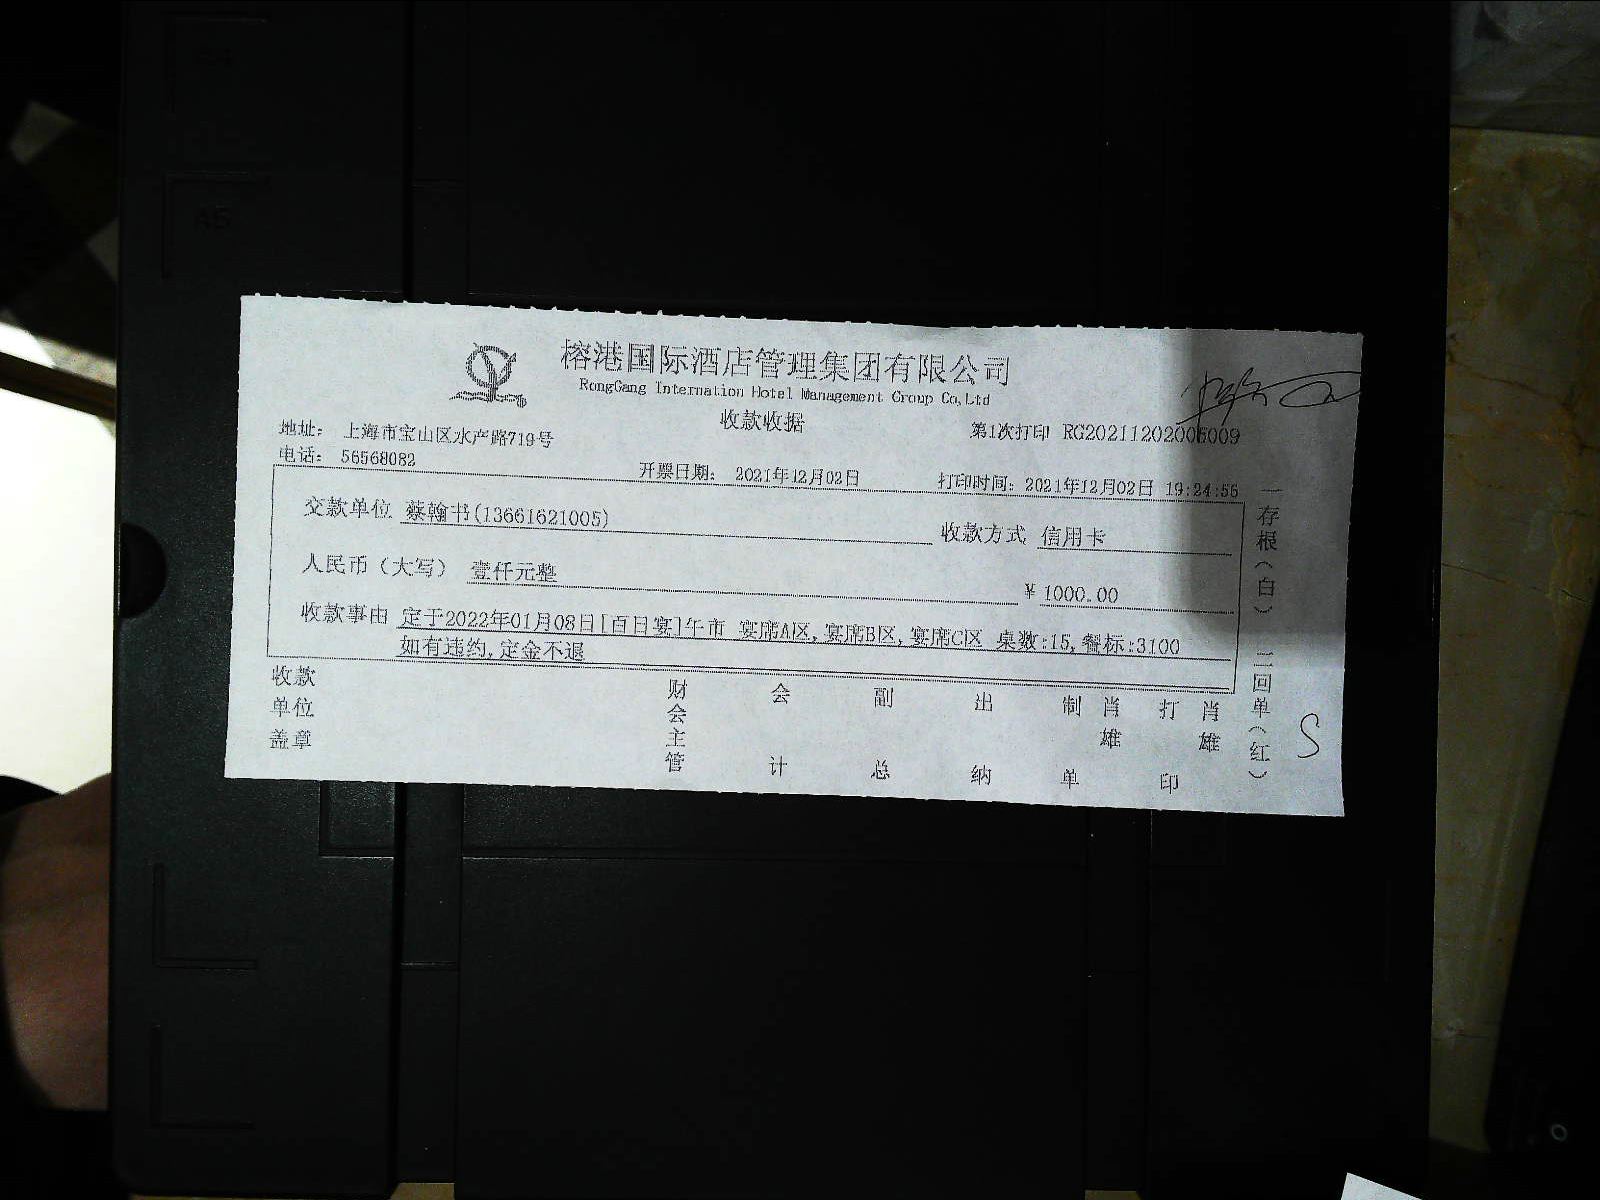 榕港国际酒店管理集团有限公司
RongGang Internation Hotel Management Group Co,Ltd
收款收据
地址： 上海市宝山区水产路719号
第1次打印 RG20211202006009
电话： 56568082
开票日期： 2021年12月02日
打印时间：2021年12月02日 19:24:55
交款单位 蔡翰书(13661621005)
收款方式 信用卡
人民币（大写） 壹仟元整
¥ 1000.00
收款事由 定于2022年01月08日[百日宴]午市 宴席A区,宴席B区,宴席C区 桌数:15,餐标:3100
如有违约,定金不退
收款单位盖章
财会主管
会计
副总
出纳
制单
肖雄
打印
肖雄
一存根（白） 二回单（红）
S
A5